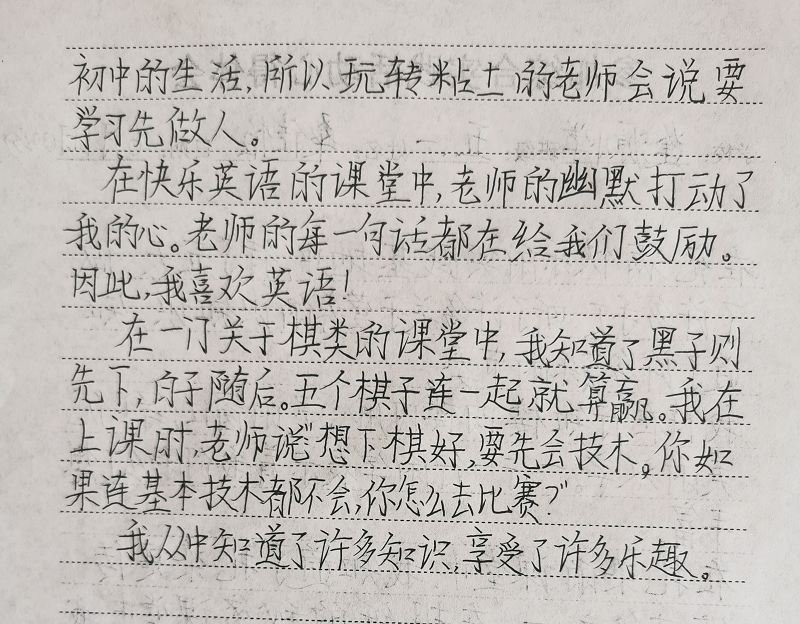 初中的生活,所以玩转粘土的老师会说要
学习先做人。
在快乐英语的课堂中,老师的幽默打动了
我的心。老师的每一句话都在给我们鼓励。
因此,我喜欢英语!
在一门关于棋类的课堂中,我知道了黑子则
先下,白子随后。五个棋子连一起就算赢。我在
上课时,老师说“想下棋好,要先会技术。你如
果连基本技术都不会,你怎么去比赛?”
我从中知道了许多知识,享受了许多乐趣。